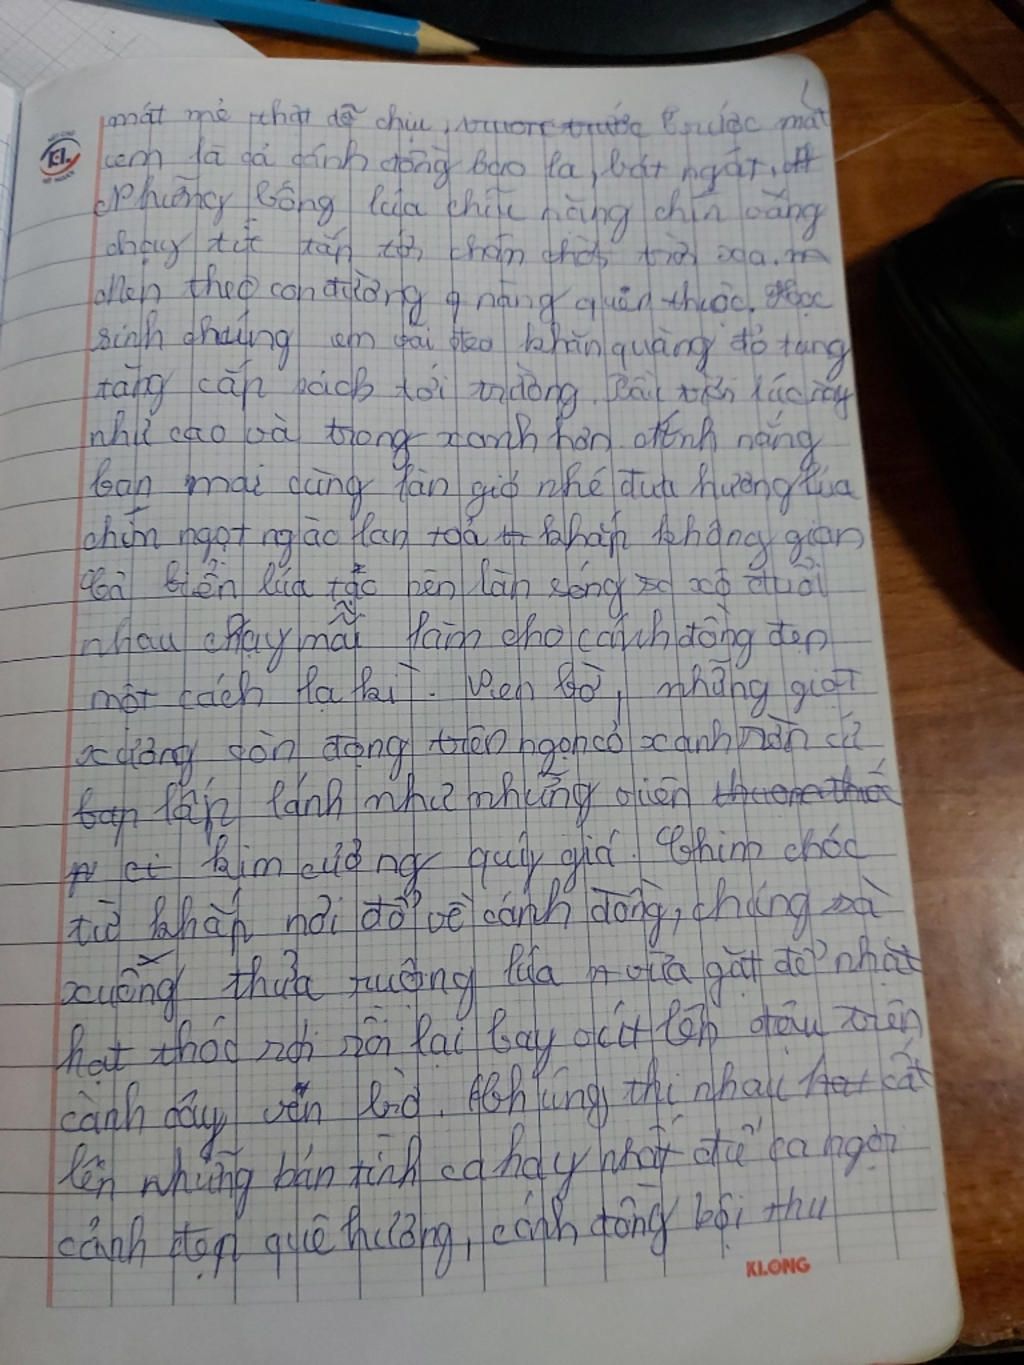 mát mẻ thật dễ chịu, trước mắt
em là cả cánh đồng bao la, bát ngát.
Những bông lúa chín vàng
chạy tít tắp tới chân trời xa.
Men theo con đường quen thuộc. Học
sinh chúng em vai đeo khăn quàng đỏ tung
tăng cắp sách tới trường. Bầu trời lúc này
như cao và trong xanh hơn. Ánh nắng
ban mai cùng làn gió nhẹ đưa hương lúa
chín ngọt ngào lan toả khắp không gian
Cả biển lúa tạo nên làn sóng xô đuổi
nhau chạy mãi làm cho cánh đồng đẹp
một cách lạ kì. Ven bờ, những giọt
xương còn đọng trên ngọn cỏ xanh rờn cứ
lấp lánh như những viên
kim cương quý giá. Chim chóc
từ khắp nơi đổ về cánh đồng, chúng xà
xuống thửa ruộng lúa vừa gặt để nhặt
hạt thóc rơi rồi lại bay vút lên đậu trên
cành cây ven bờ. Chúng thi nhau cất
lên những bản tình ca hay nhất để ca ngợi
cảnh đẹp quê hương, cánh đồng bội thu
KLONG